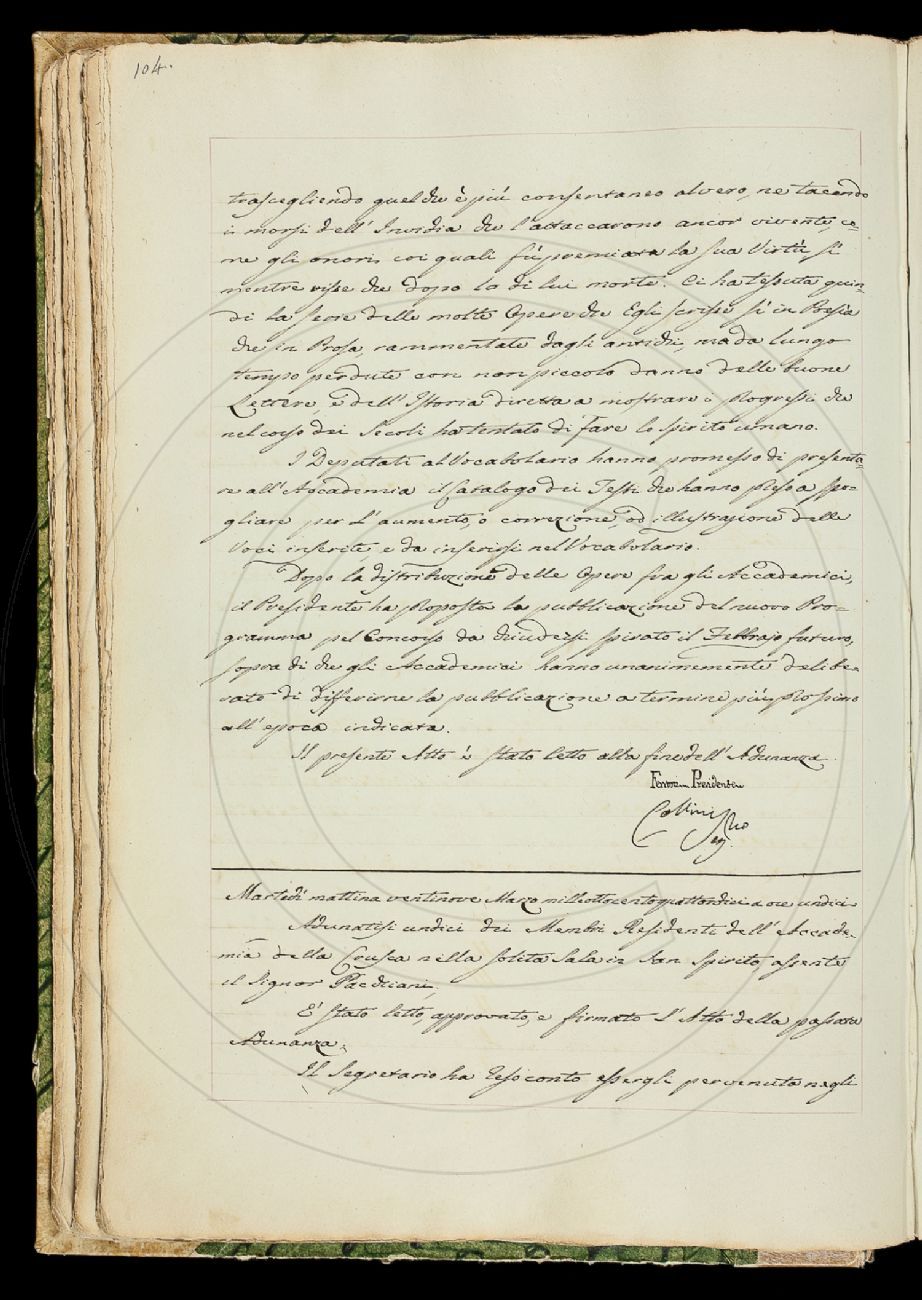 104.
trascegliendo quel che è più consentaneo al vero, ne tacendo
i morsi dell' Invidia che l'attaccarono ancor vivente, co-
me gli onori, coi quali fù premiata la sua Virtù sì
mentre visse che dopo la di lui morte. Ci ha tessuta quin-
di la serie delle molte Opere che Egli scrisse sì in Poesia
che in Prosa, rammentate dagli antichi, ma da lungo
tempo perdute con non piccolo danno delle buone
Lettere, e dell' Istoria diretta a mostrare i progressi che
nel corso dei Secoli ha tentato di fare lo Spirito umano.
I Deputati al Vocabolario hanno promesso di presenta-
re all' Accademia il Catalogo dei Testi che hanno preso a spo-
gliare per l' aumento, o correzione, od illustrazione delle
Voci inserite e da inserirsi nel Vocabolario.
Dopo la distribuzione delle Opere fra gli Accademici,
il Presidente ha proposta la pubblicazione del nuovo Pro-
gramma pel Concorso da chiudersi spirato il Febbrajo futuro,
sopra di che gli Accademici hanno unanimemente delibe-
rato di differirne la pubblicazione a termine più prossimo
all' epoca indicata.
Il presente Atto è stato letto alla fine dell' Adunanza.
Ferroni Presidente
Collini Seg.rio
Martedì mattina ventinove Marzo milleottocentoquattordici a ore undici
Adunatisi undici dei Membri Residenti dell' Accade-
mia della Crusca nella solita Sala in San Spirito, assente
il Signor Pacchiani,
E' stato letto, approvato, e firmato l' Atto della passata
Adunanza.
Il Segretario ha reso conto essergli pervenuta negli